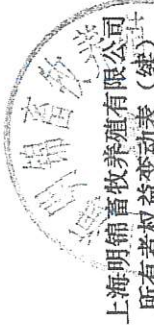 上海明锦畜牧养殖有限公司
所有者权益变动表（续）